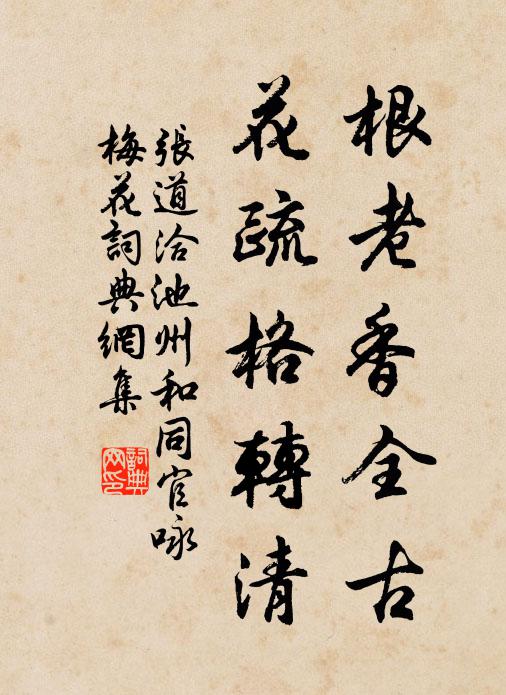 根老香全古
花疏格轉清
張道洽池州和同官咏
梅花詞典網集
詞典
网印